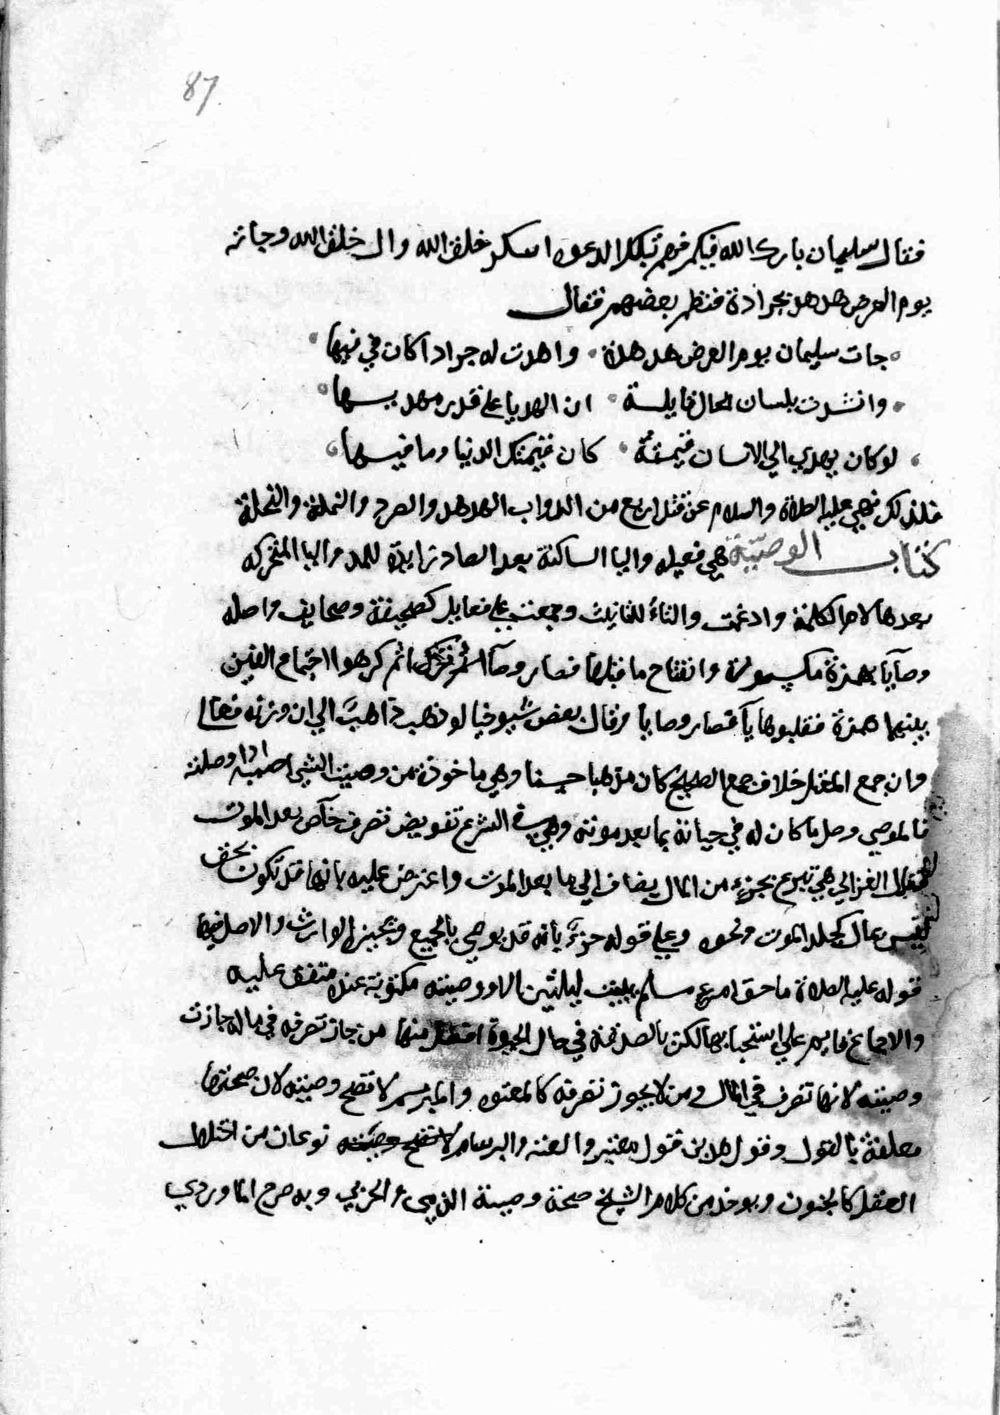 87
فقال سليمان بارك الله فيكم فهم بتلك الدعوة اشكر خلق الله وال خلق الله وجاته
يوم العرض هدهد بجرادة فنظم بعضهم فقال
جات سليمان يوم العرض هدهدة واهدت له جرادا كان في فيها
وانشدت بلسان الحال قايلة ان الهدايا على قدر مهديها
لو كان يهدي الي الانسان قيمته كان قيمتك الدنيا وما فيها
فلذلك نهي عليه الصلاة والسلام عن قتل اربع من الدواب الهدهد والصرد والنملة والنحلة
كتاب الوصية هي فعيلة واليا الساكنة بعد الصاد زايدة للمد واليا المتحركة
بعدها لام الكلمة وادغمت والتاء للتانيث وجمعت علي فعايل كصحيفة وصحايف واصله
وصآيا بهمزة مكسورة وانفتاح ما قبلها فصار وصآا ثم كرهوا اجتماع الفين
بينهما همزة فقلبوها يآ فصار وصايا وقال بعض شيوخنا لو ذهب ذاهب الي ان وزنه فعالي
وان جمع المعتل خلاف جمع الصحيح كان مذهبا حسنا وهي ماخوذة من وصيت الشي اصيه اذا وصلته
فالموصي وصل ما كان له في حياته بما بعد موته وهي في الشرع تفويض تصرف خآص بعد الموت
وقال الغزالي هي تبرع بجزء من المال يضاف الي ما بعد الموت واعترض عليه بانها قد تكون بحق
ليس بمال كجلد الموت ونحوه وعلي قوله جزء بانه قد يوصي بالجميع ويجيز الوارث والاصل فيها
قوله عليه الصلاة ما حق امرء مسلم يبيت ليلتين الا ووصيته مكتوبة عنده متفق عليه
والاجماع قايم علي استحبابها لكن بالصدقة في حال الحيوة افضل منها من جاز تصرفه في ماله جازت
وصيته لانها تصرف في المال ومن لا يجوز تصرفه كالمعتوه والمبرسم لا تصح وصيته لان صحتها
معلقة بالقول وقول هذين قول مغير والعته والبرسام نوعان من اختلال
العقل كالجنون ويوخذ من كلام الشيخ صحة وصية الذمي والحربي وبه صرح الماوردي